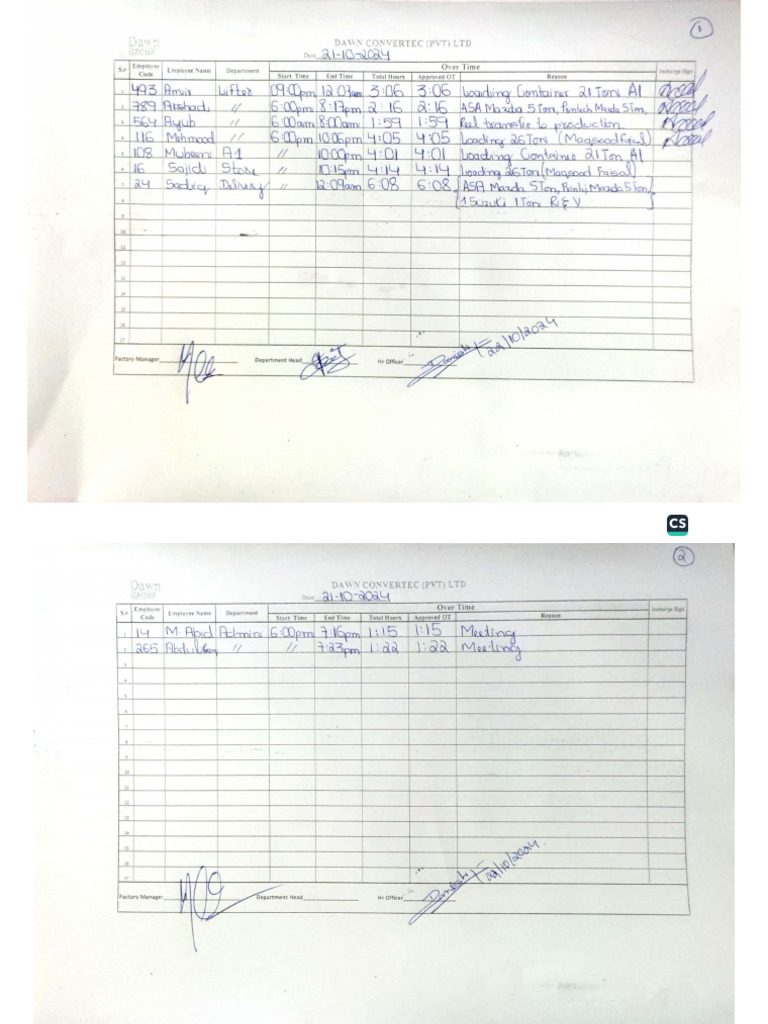 1
Dawn
GROUP
DAWN CONVERTEC (PVT) LTD
Date 21-10-2024
S.r Employee Code Employee Name Department Over Time Incharge Sign
Start Time End Time Total Hours Approved OT Reason
1 493 Amir Lifter 09:00pm 12:07am 3:06 3:06 Loading Container 21 Ton A1
2 789 Arshad " 6:00pm 8:17pm 2:16 2:16 ASA Mazda 5 Ton, Mazda 5 Ton,
3 564 Ayub " 6:00am 8:00am 1:59 1:59 Reel transfer to production
4 116 Mehmood " 6:00pm 10:06pm 4:05 4:05 Loading 26 Ton (Maqsood Faisal)
5 108 A1 " 10:00pm 4:01 4:01 Loading Container 21 Ton A1
6 16 Sajid Store " 10:15pm 4:14 4:14 Loading 26 Ton (Maqsood Faisal)
7 24 Sadiq " 12:09am 6:08 6:08 ASA Mazda 5 Ton, Mazda 5 Ton,
8 1 Suzuki 1 Ton R & V
9
10
11
12
13
14
15
16
17
Factory Manager Department Head Hr Officer Danish 22/10/2024
CS
2
Dawn
GROUP
DAWN CONVERTEC (PVT) LTD
Date 21-10-2024
S.r Employee Code Employee Name Department Over Time Incharge Sign
Start Time End Time Total Hours Approved OT Reason
1 14 M. Abid Admin 6:00pm 7:16pm 1:15 1:15 Meeting
2 265 " " 7:23pm 1:22 1:22 Meeting
3
4
5
6
7
8
9
10
11
12
13
14
15
16
17
Factory Manager Department Head Hr Officer Danish 22/10/2024